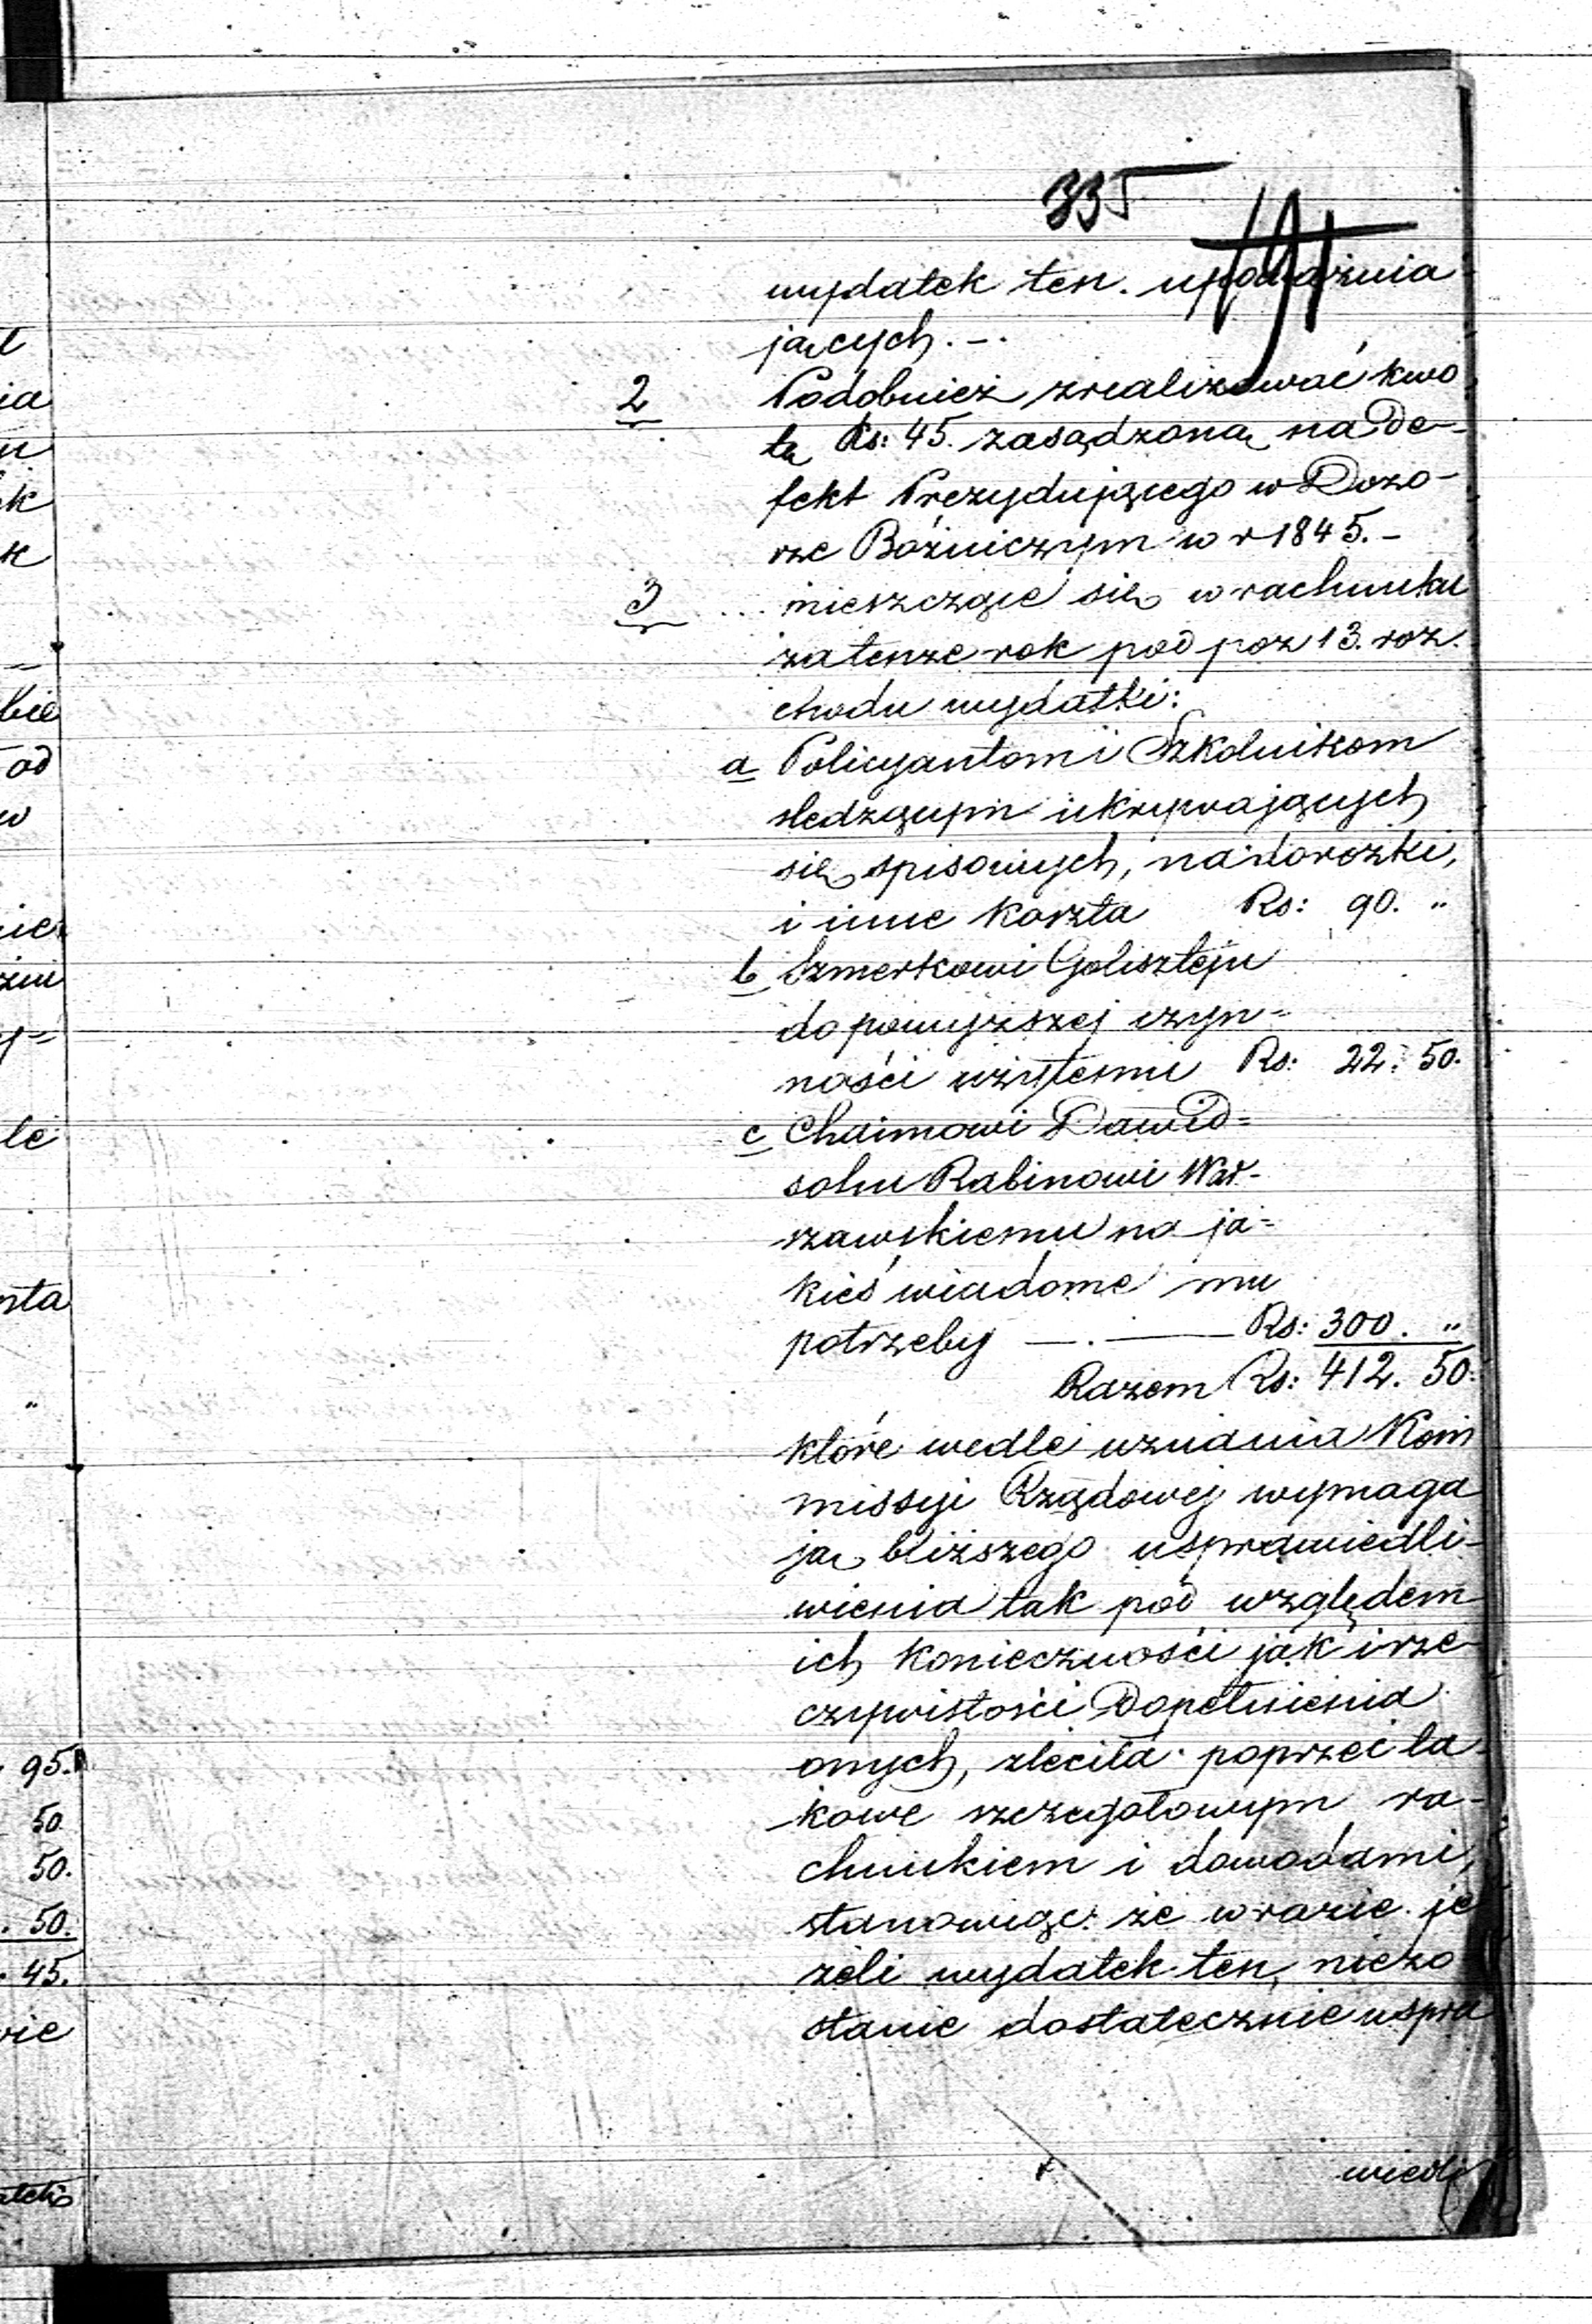 335
191
wydatek ten. upoważnia
jących. -.
2 Podobnież zrealizować kwo
tę Rs: 45. zasądzoną na De-
fekt Prezydującego w Dozo-
rze Bóżniczym w r 1845. -
3 ... mieszczące się w rachunku
za tenże rok pod poz 13. roz.
chodu wydatki:
a Policyantom i Szkolnikom
śledzącym ukrywających
się spisowych, na dorożki,
i inne koszta Rs: 90. "
b Szmerkowi Golisztejn
do powyższej czyn=
ności użytemu Rs: 22. 50.
c Chaimowi Dawid=
sohn Rabinowi War-
szawskiemu na ja=
kieś wiadome mu
potrzeby —.— Rs: 300. "
Razem Rs: 412. 50.
które wedle uznania Kom
missyi Rządowej wymaga
ją bliższego usprawiedli-
wienia tak pod względem
ich konieczności jak i rze-
czywistości Dopełnienia
onych, zleciła poprzeć ta-
kowe szczegółowym ra-
chunkiem i dowodami,
stanowiąc że w razie je
żeli wydatek ten, niezo
stanie dostatecznie uspra
wiedli
ia
k
bie
od
w
le
"
95.
50
50.
50.
45.
wie